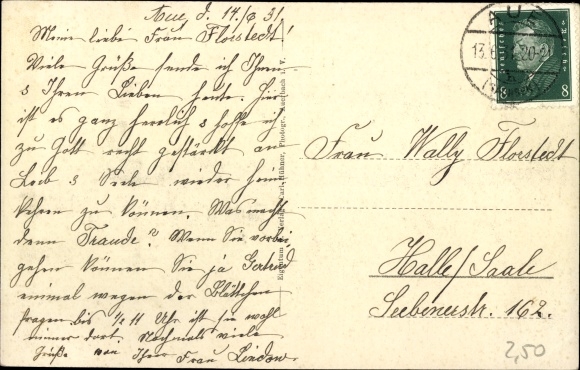 Aue, d. 14./6 31.
Meine liebe Frau Floestedt!
Viele Grüße sende ich Ihnen
& Ihren Lieben heute. Hier
ist es ganz herrlich & hoffe ich
zu Gott recht gestärkt an
Leib & Seele wieder heim
kehren zu können. Was macht
denn Traude? Wenn Sie vorbei
gehen können Sie ja Gertrud
einmal wegen der Blättchen
fragen bis ½ 11 Uhr ist sie wohl
immer dort. Nochmals viele
Grüße von Ihrer Frau Lindow.
Eigentum u. Verlag Carl Hübner, Photogr., Auerbach i. V.
AUE
13.6. 20-21
Deutsches Reich
8 8
Frau Wally Floestedt
Halle/Saale
Seebenerstr. 162.
2,50